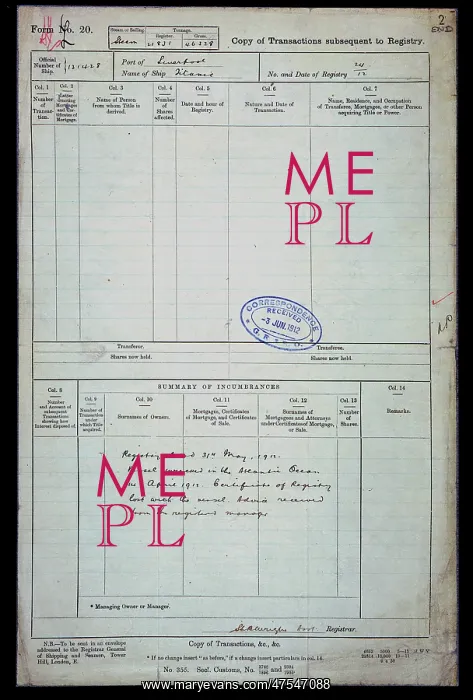 2
END
Form No. 20.
Steam or Sailing.
Tonnage.
Register.
Gross.
Steam
21831
46328
Copy of Transactions subsequent to Registry.
Official Number of Ship.
131428
Port of Liverpool
Name of Ship Titanic
No. and Date of Registry 24/12
Col. 1
Number of Transaction.
Col. 2
Letter denoting Mortgages and Certificates of Mortgage.
Col. 3
Name of Person from whom Title is derived.
Col. 4
Number of Shares affected.
Col. 5
Date and hour of Registry.
Col. 6
Nature and Date of Transaction.
Col. 7
Name, Residence, and Occupation of Transferee, Mortgagee, or other Person acquiring Title or Power.
ME
PL
CORRESPONDENCE
RECEIVED
-3 JUN. 1912
Transferor.
Transferee.
Shares now held.
Shares now held.
SUMMARY OF INCUMBRANCES
Col. 8
Number and Account of subsequent Transactions showing how Interest disposed of.
Col. 9
Number of Transaction under which Title acquired.
Col. 10
Surnames of Owners.
Col. 11
Mortgages, Certificates of Mortgage, and Certificates of Sale.
Col. 12
Surnames of Mortgagees and Attorneys under Certificates of Mortgage, or Sale.
Col. 13
Number of Shares.
Col. 14
Remarks.
Registry 31st May, 1912.
in the Atlantic Ocean
April 1912. Certificate of Registry
lost with the vessel. Advice received
from the registered manager
ME
PL
* Managing Owner or Manager.
Registrar.
N.B.—To be sent in an envelope
addressed to the Registrar General
of Shipping and Seamen, Tower
Hill, London, E.
Copy of Transactions, &c., &c.
* If no change insert "as before," if a change insert particulars in col. 14.
No 355. Seal. Customs, No.
www.maryevans.com/47547088